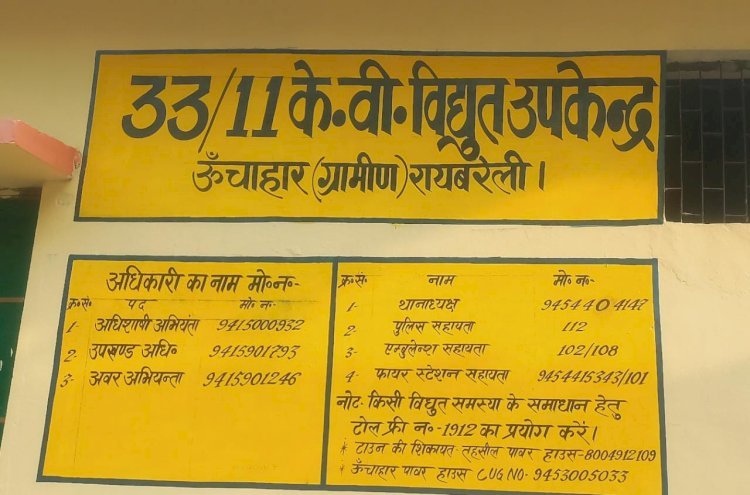 33/11 के॰वी॰ विद्युत उपकेन्द्र
ऊँचाहार (ग्रामीण) रायबरेली।
अधिकारी का नाम मो॰न॰-
क्र॰सं॰ पद मो॰ न॰-
1- अधिशाषी अभियंता 9415000932
2- उपखण्ड अधि॰ 9415901793
3- अवर अभियन्ता 9415901246
क्र॰सं॰ नाम मो॰ न॰-
1- थानाध्यक्ष 9454404147
2- पुलिस सहायता 112
3- एम्बुलेन्श सहायता 102/108
4- फायर स्टेशन सहायता 9454415343/101
नोट- किसी विद्युत समस्या के समाधान हेतु
टोल फ्री न॰-1912 का प्रयोग करें।
* टाउन की शिकायत- तहसील पावर हाउस-8004912109
* ऊँचाहार पावर हाउस CUG NO- 9453005033